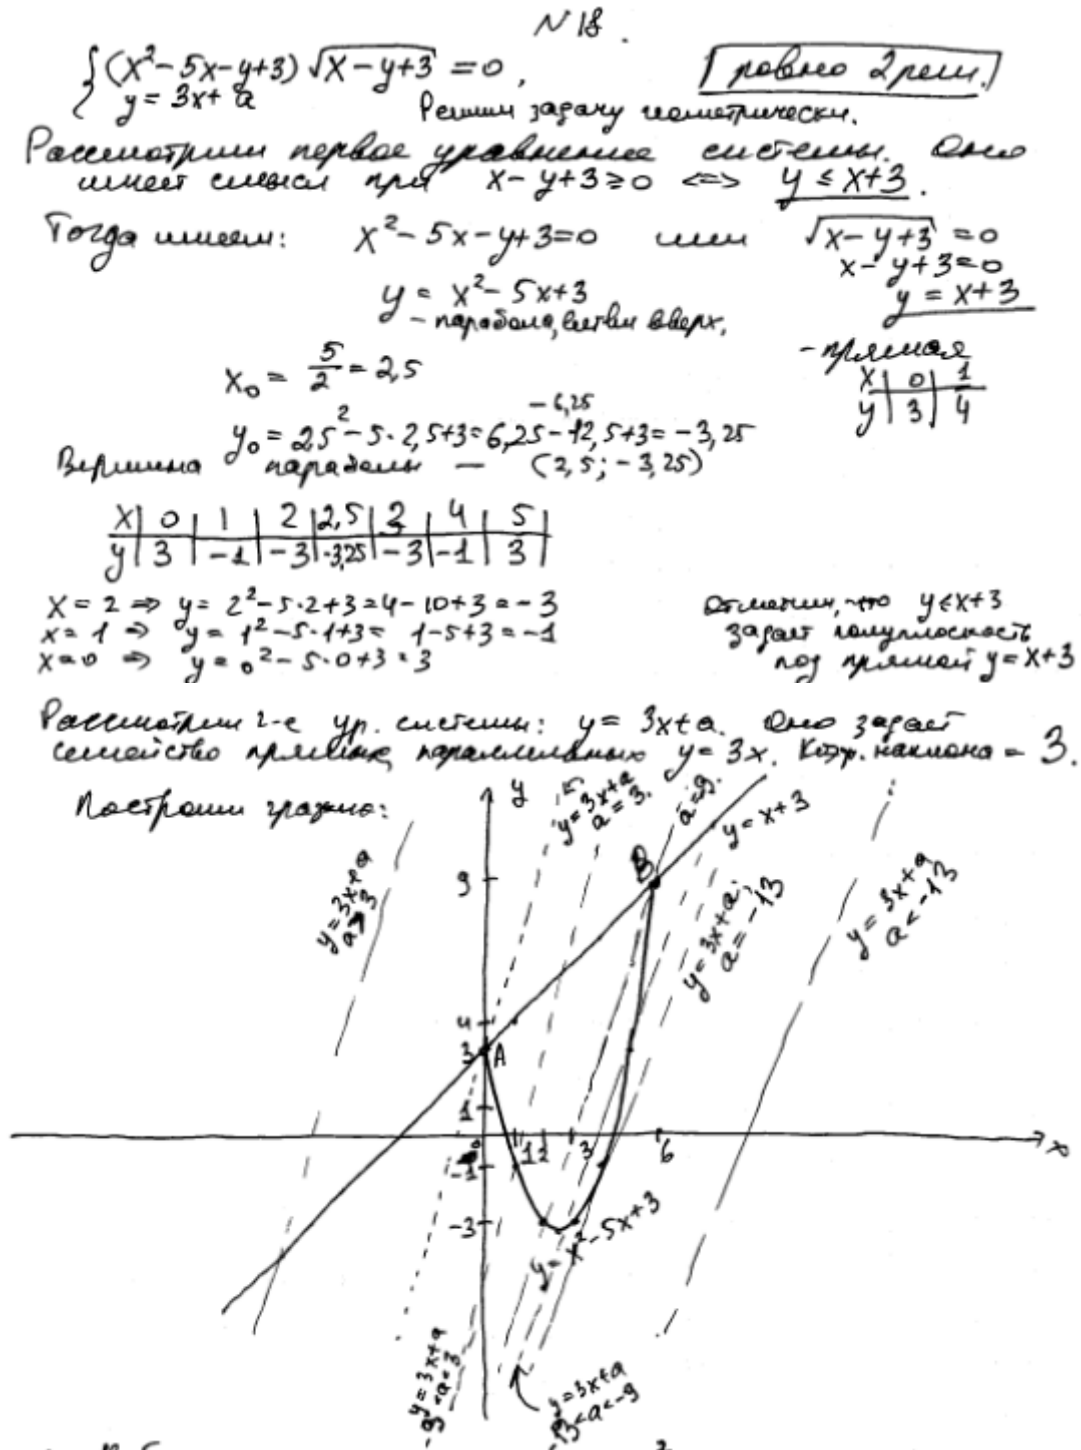 N 18.
{ (x² - 5x - y + 3) √(x - y + 3) = 0,
y = 3x + a
ровно 2 реш.
Решим задачу геометрически.
Рассмотрим первое уравнение системы. Оно
имеет смысл при x - y + 3 ≥ 0 <=> y ≤ x + 3.
Тогда имеем: x² - 5x - y + 3 = 0 или √(x - y + 3) = 0
x - y + 3 = 0
y = x² - 5x + 3
y = x + 3
- парабола, ветви вверх,
- прямая
x | 0 | 1
y | 3 | 4
x₀ = 5/2 = 2,5
- 6,25
y₀ = 2,5² - 5·2,5 + 3 = 6,25 - 12,5 + 3 = -3,25
Вершина параболы — (2,5; -3,25)
x | 0 | 1 | 2 | 2,5 | 3 | 4 | 5 |
y | 3 | -1 | -3 | -3,25 | -3 | -1 | 3 |
x = 2 => y = 2² - 5·2 + 3 = 4 - 10 + 3 = -3
x = 1 => y = 1² - 5·1 + 3 = 1 - 5 + 3 = -1
x = 0 => y = 0² - 5·0 + 3 = 3
Отметим, что y ≤ x + 3
задает полуплоскость
под прямой y = x + 3
Рассмотрим 2-е ур. системы: y = 3x + a. Оно задает
семейство прямых, параллельных y = 3x. Коэф. наклона = 3.
Построим графики:
y
y = 3x + a
a = 3.
a = -9.
y = x + 3
y = 3x + a
a > 3
B
9
y = 3x + a;
a = -13
y = 3x + a
a < -13
4
3
A
1
0
1
2
3
6
x
-1
-3
y = x² - 5x + 3
y = 3x + a
-9 < a < 3
y = 3x + a
-13 < a < -9